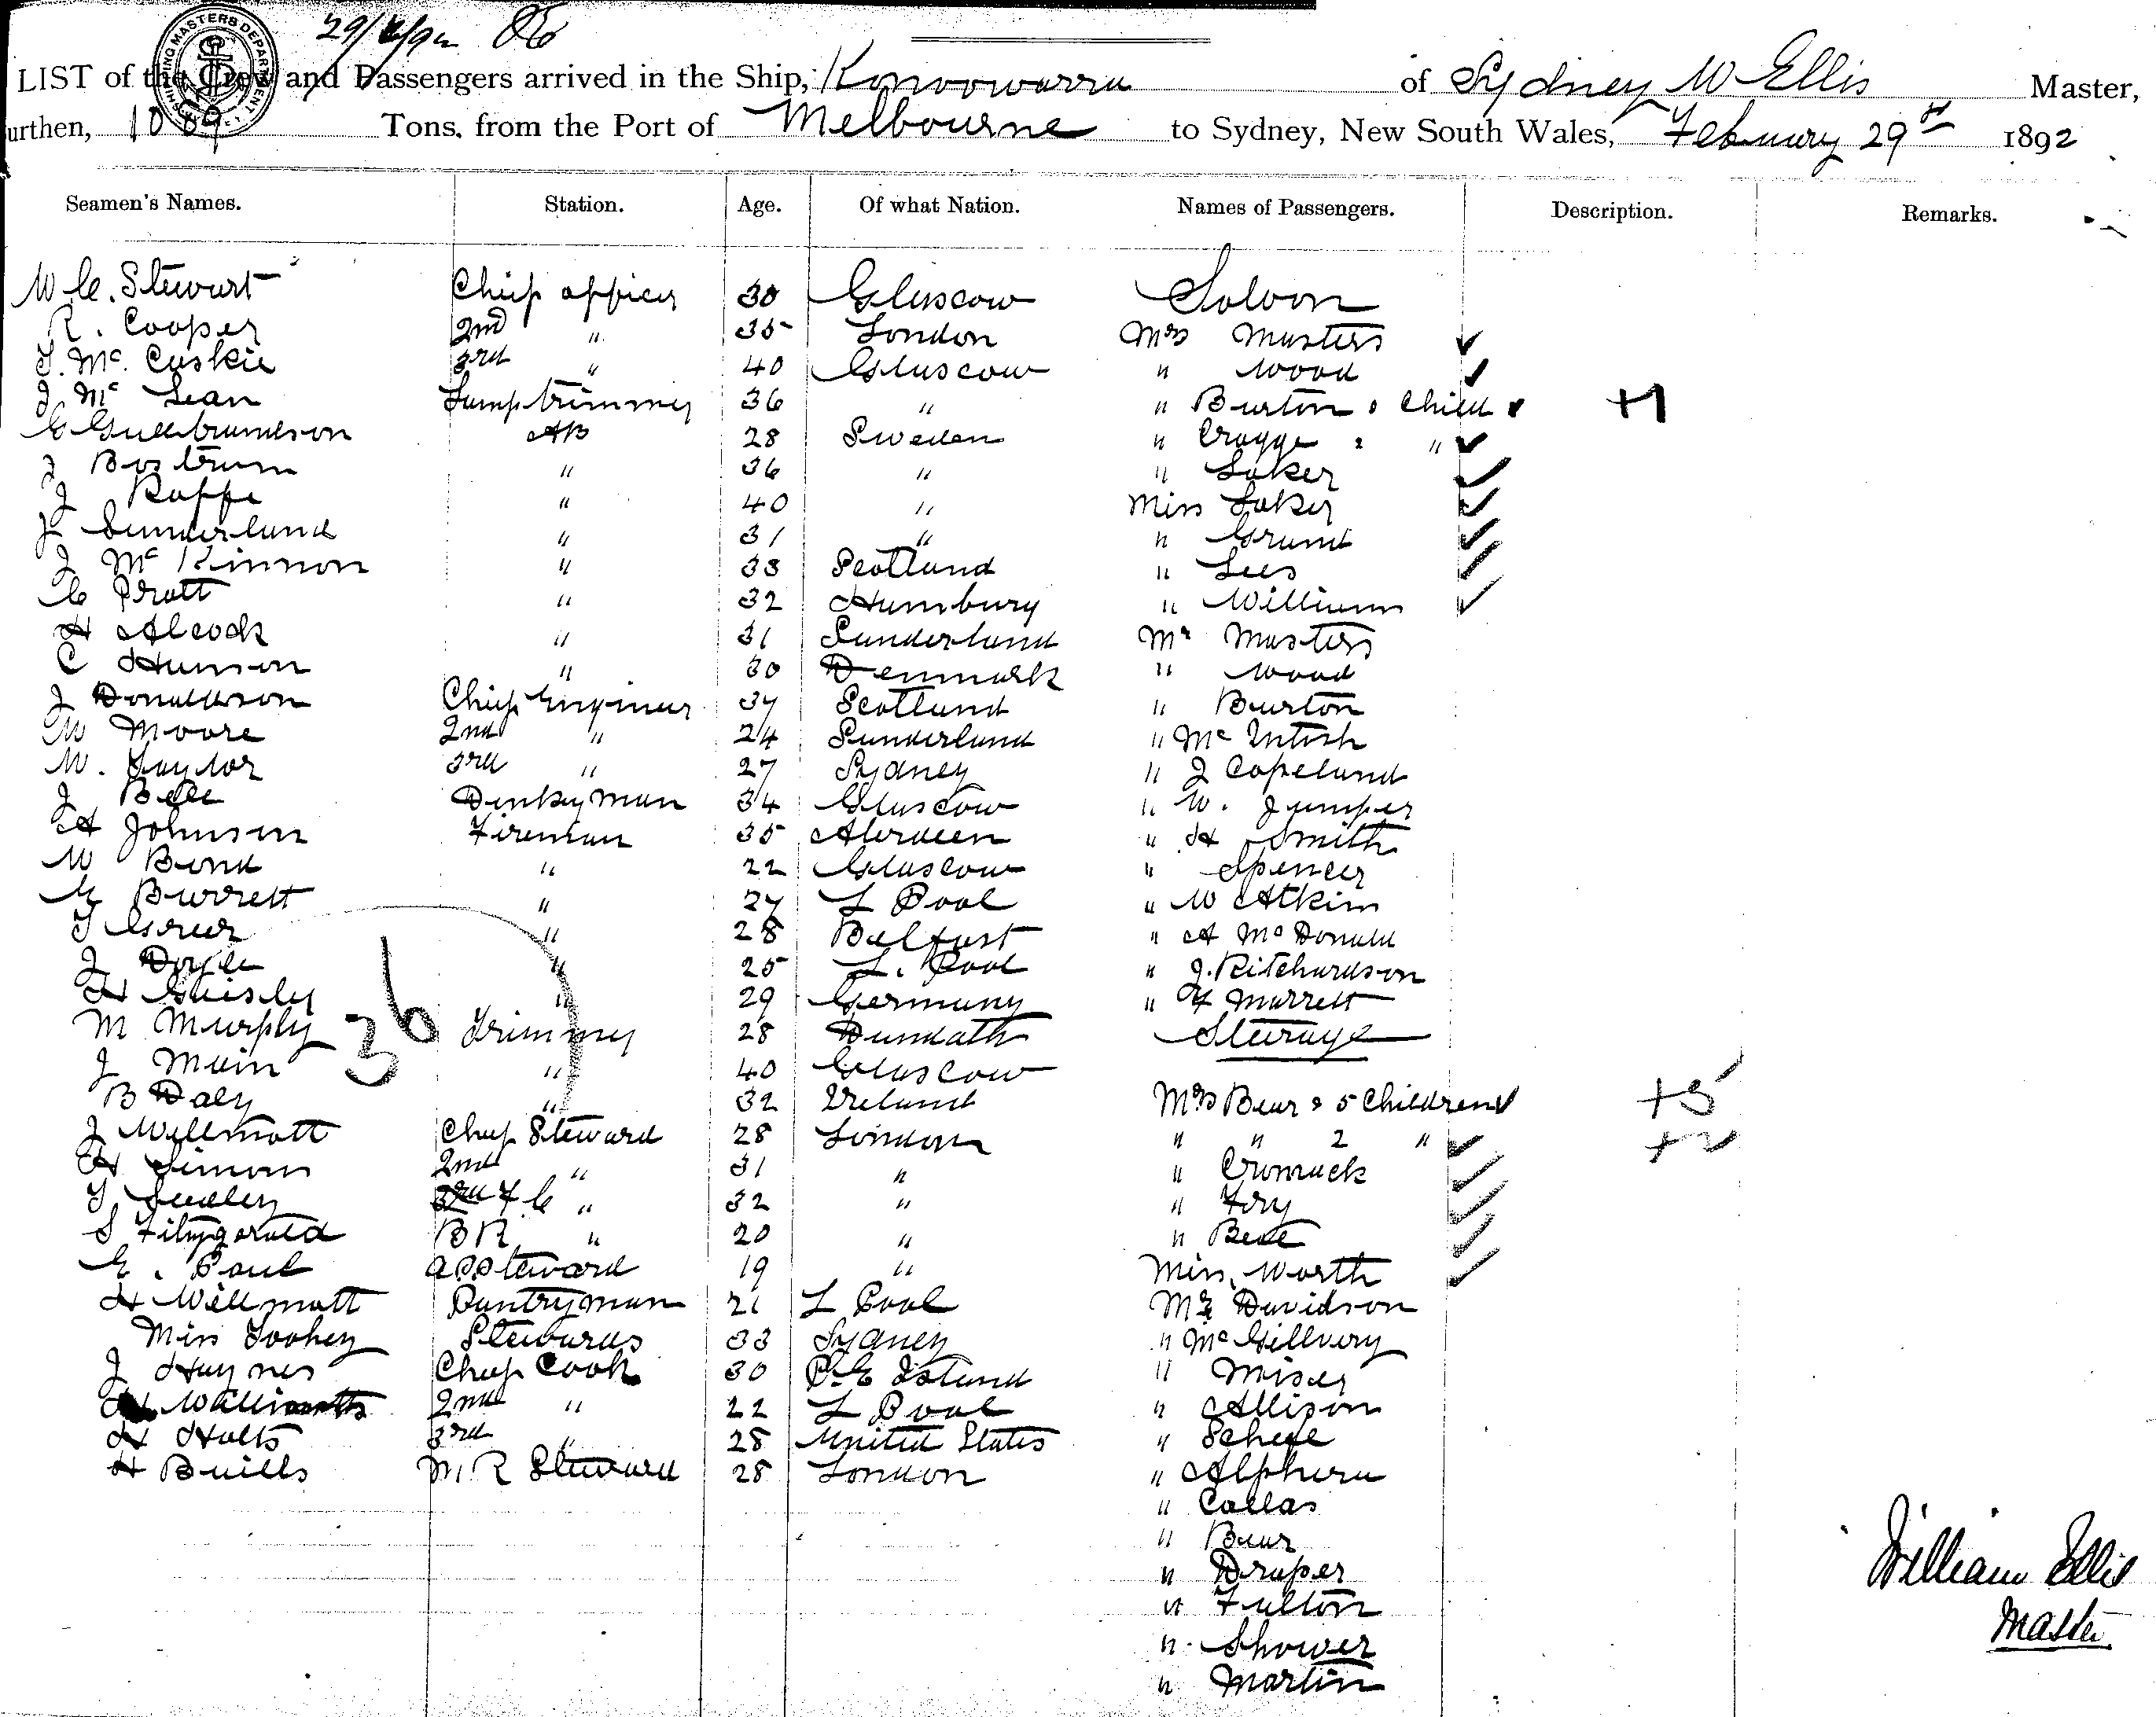 29/2/92
SHIPPING MASTERS DEPARTMENT
LIST of the Crew and Passengers arrived in the Ship, Konoowarra of Sydney W Ellis Master,
urthen, 1089 Tons, from the Port of Melbourne to Sydney, New South Wales, February 29th 1892
Seamen's Names. Station. Age. Of what Nation. Names of Passengers. Description. Remarks.
W C. Stewart Chief officer 30 Glascow Saloon
R. Cooper 2nd " 35 London Mrs Masters
J. Mc. Cuskie 3rd " 40 Glascow " Wood
J Mc Lean Lamptrimmer 36 " " Burton & Child +1
C Gullbrandson AB 28 Sweden " Cragge & "
J Bostrum " 36 " " Laker
J Raffe " 40 " Miss Laker
J Sunderland " 31 " " Grand
J Mc Kinnon " 33 Scotland " Lees
C Pratt " 32 Hamburg " Williams
H Alcock " 31 Sunderland Mr Masters
C Hanson " 30 Denmark " Wood
J Donaldson Chief Engineer 37 Scotland " Burton
W Moore 2nd " 24 Sunderland " Mc Intosh
W. Taylor 3rd " 27 Sydney " J Copeland
J Bell Donkeyman 34 Glascow " W. Jumper
A Johnson Fireman 35 Aberdeen " H Smith
W Bond " 22 Glascow " Spencer
G Barrett " 27 L Pool " W Atkins
T Greer " 28 Belfast " A Mc Donald
J Doyle " 25 L. Pool " J. Ritchardson
H Guisly " 29 Germany " F Marrett
M Murphy 36 Trimmer 28 Dundath Steerage
J Main " 40 Glascow
B Daly " 32 Ireland Mrs Bear & 5 Children +5
J Willmott Chief Steward 28 London " " 2 " +2
H Simons 2nd " 31 " " Cromack
T Sedley 3rd F C " 32 " " Fry
S Fitzgerald B R " 20 " " Bell
E. Paul asSteward 19 " Miss Worth
H Willmott Pantryman 21 L Pool Mr Davidson
Miss Toohey Stewardss 33 Sydney " Mc Gillvery
J Haynes Chief Cook 30 P. E Island " Miser
2nd " 22 L Pool " Allison
H Holts 3rd " 28 United States " Schele
H Buills M. R Steward 28 London " Alphera
" Callas
" Baur
" Draper
" Fulton
" Shower
" Martin
William Ellis
Master